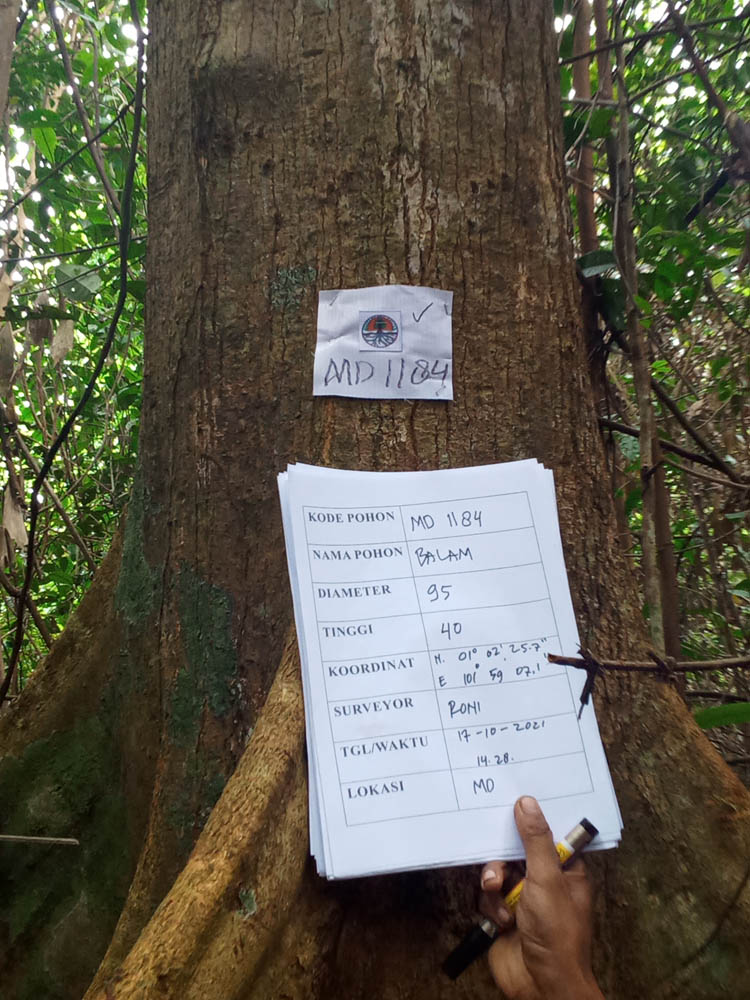 MD 1184
KODE POHON MD 1184
NAMA POHON BALAM
DIAMETER 95
TINGGI 40
KOORDINAT N. 01° 02' 25.7"
E 101° 59 07.1
SURVEYOR RONI
TGL/WAKTU 17-10-2021
14.28.
LOKASI MD